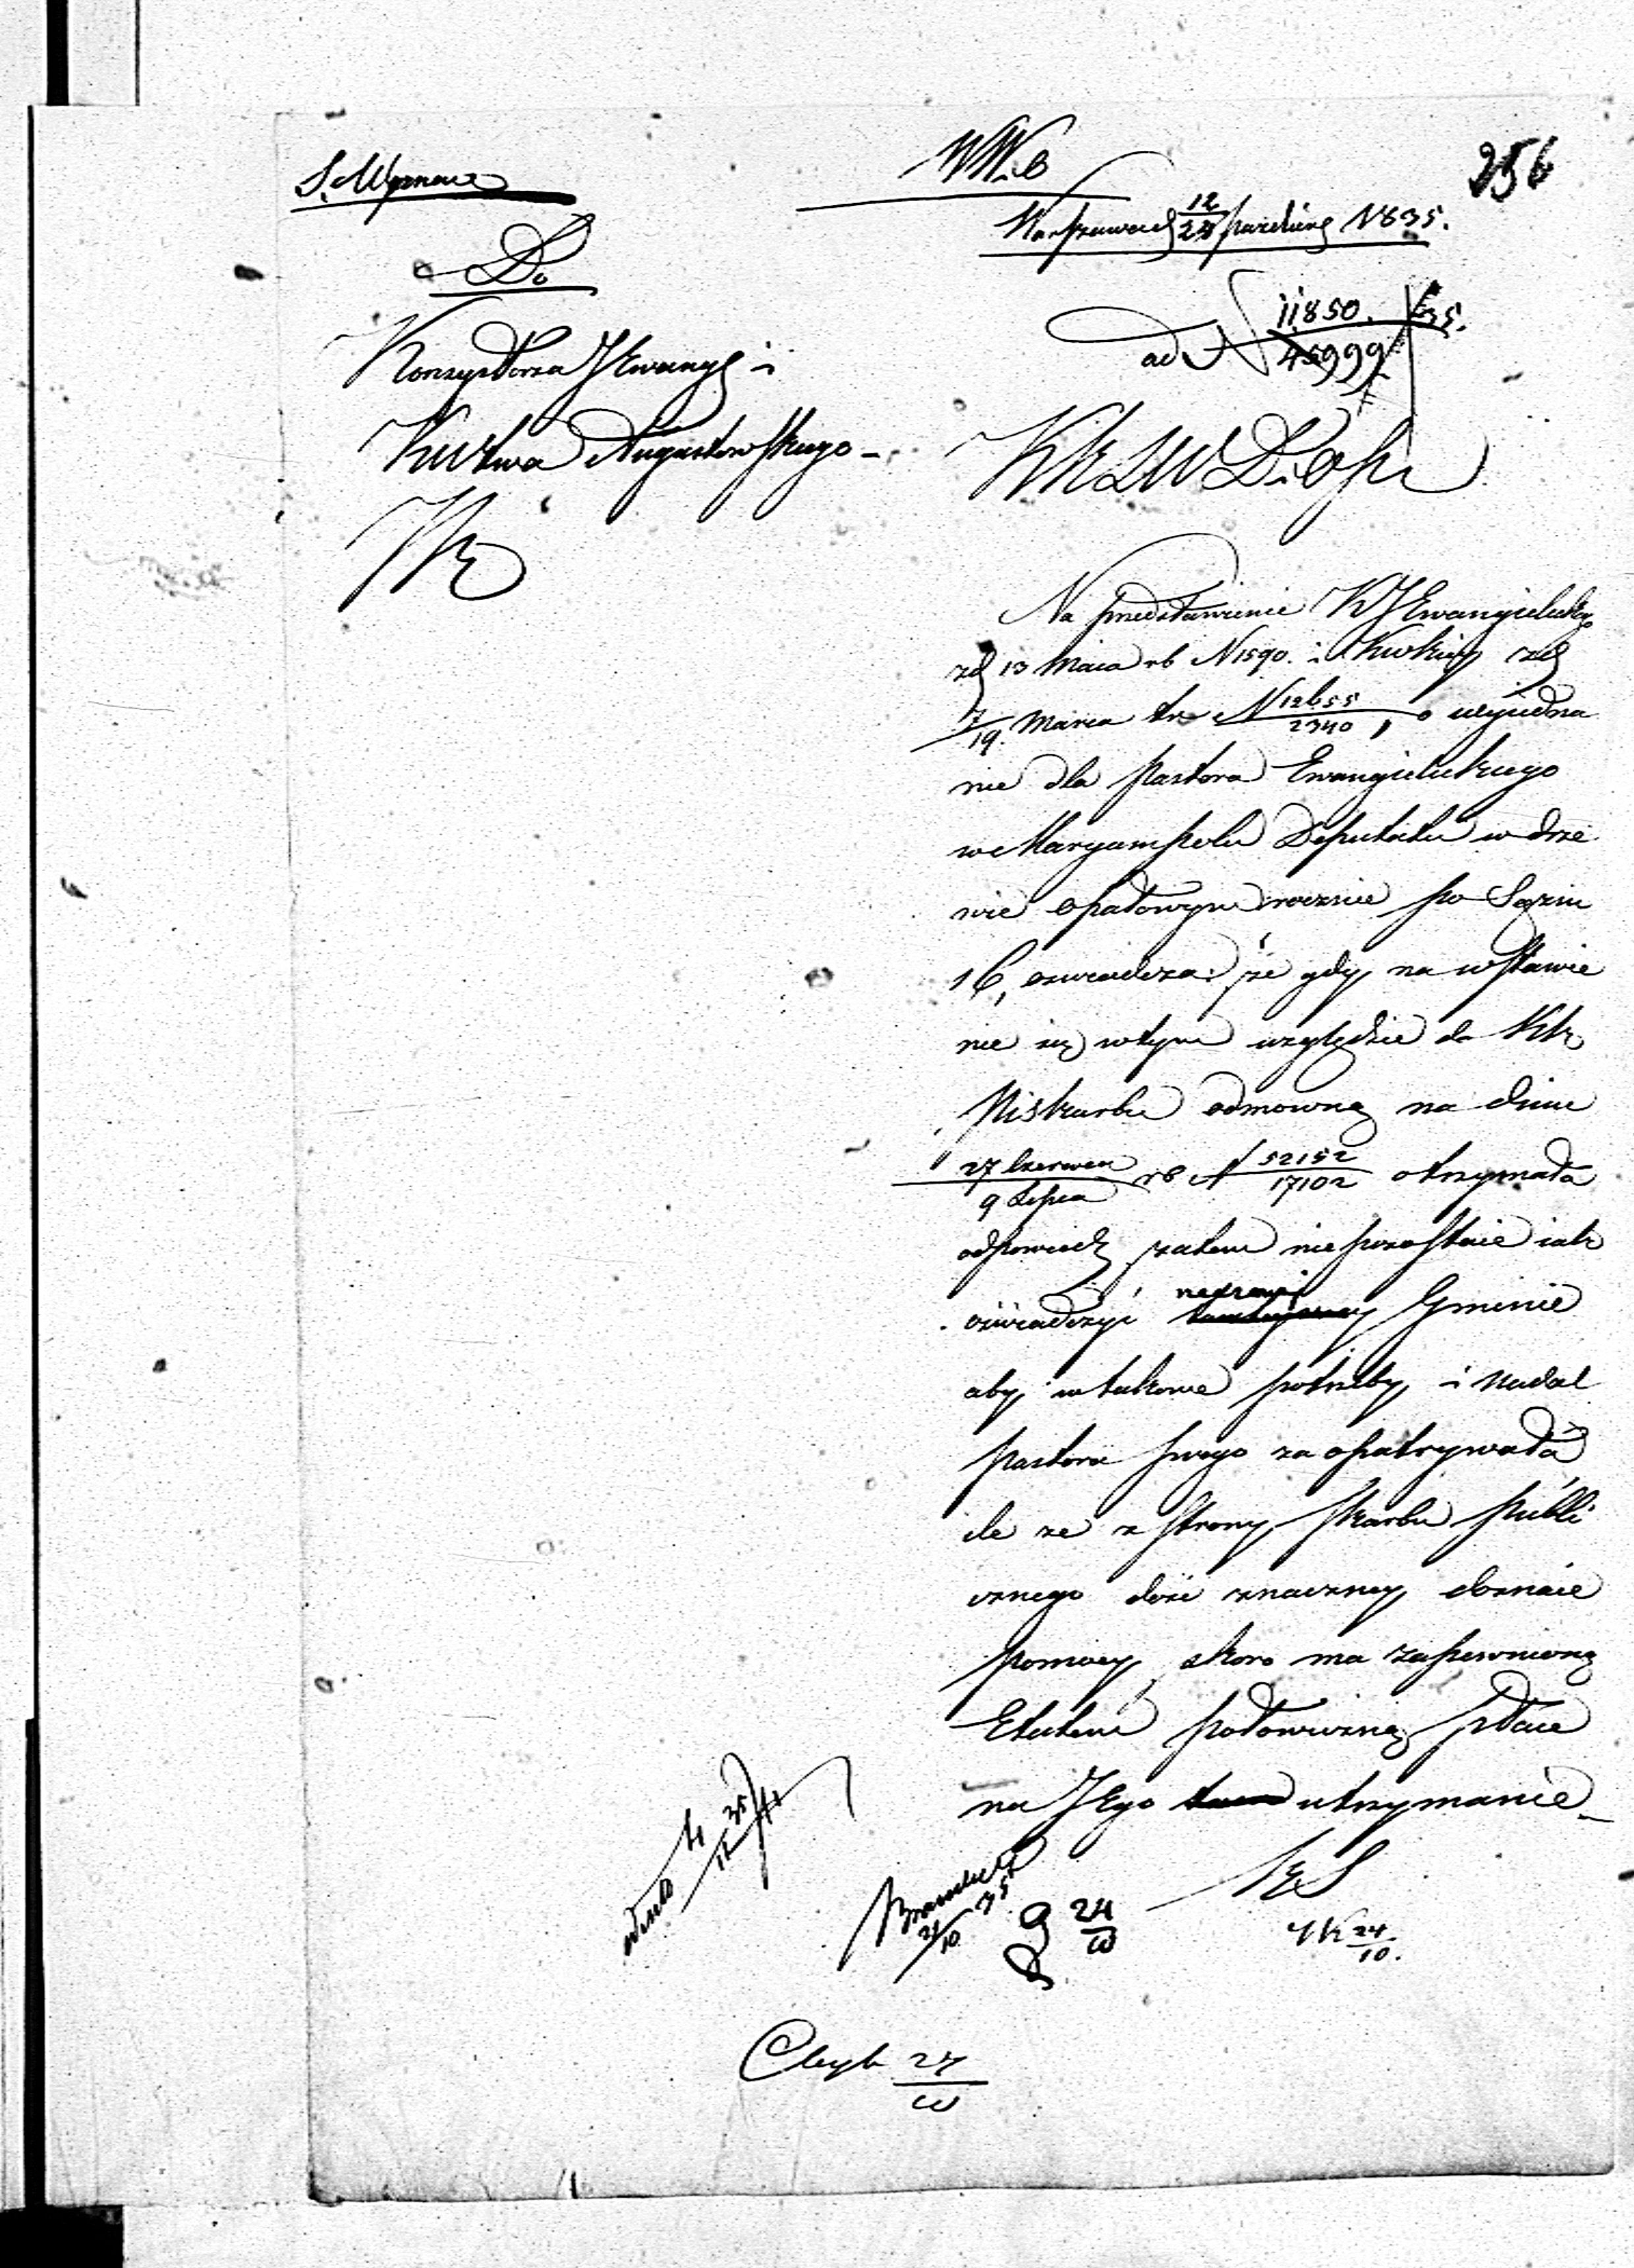 S. Wyznań
WW. O
256
Warszawa d 12/24 Paździer 1835.
Do
ad N 11850. /35.
45999
Konsystorza JEwang i
KWztwa Augustowskiego -
KRSWDiOP
Na przedstawienie KJEwangielickgo
zd 13 Maia rb N 1590. i KWskiey zd
7/19. Marca tr N 12655/2340, o wyjedna
nie dla Pastora Ewangielickiego
w Maryampolu Deputatu w drze
wie opałowym rocznie po Sążni
16, oswiadcza: że gdy na wstawie
nie się w tym względzie do KR
PiSkarbu odmowną na dniu
27 Czerwca/9 Lipca rb N 52152/17102 otrzymała
odpowiedz zatem niepozostaie iak
oświadczyć Gminie
aby w takowe potrzeby i nadal
Pastora swego zaopatrywała
ile ze z strony Skarbu Publi
cznego dosć znaczney doznaie
pomocy, skoro ma zapewnioną
Etatem połowiczną płace
na JEgo utrzymanie _
24/10 35
24/10
24/10.
27/10